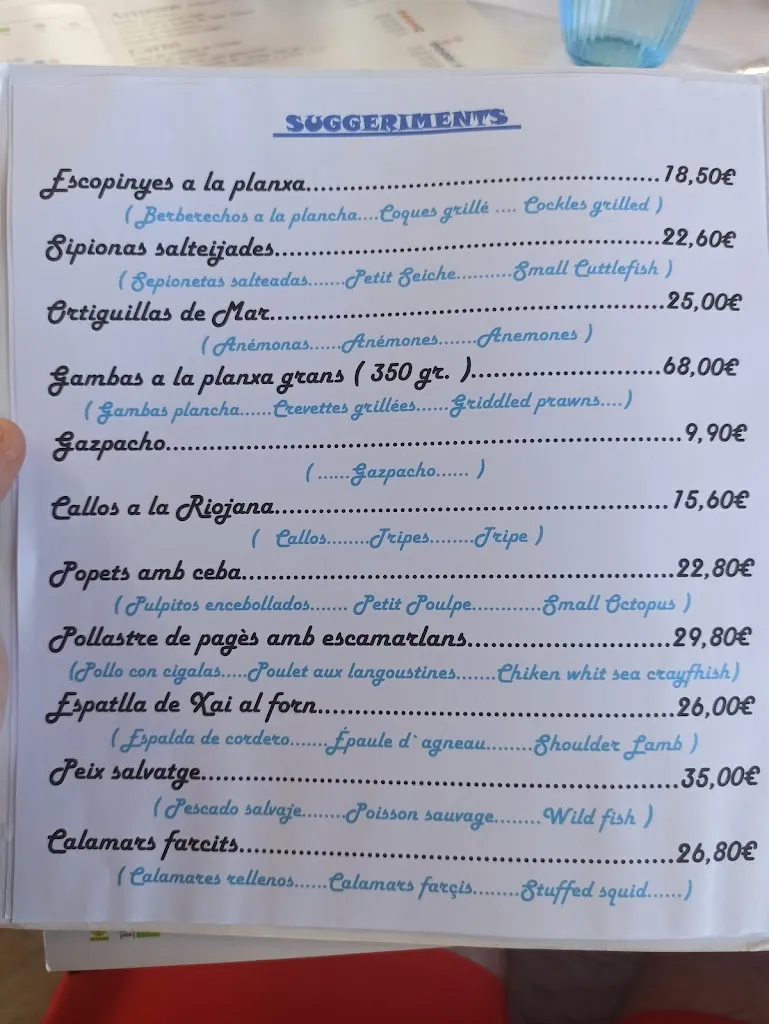 SUGGERIMENTS
Escopinyes a la planxa..................................................18,50€
( Berberechos a la plancha....Coques grillé .... Cockles grilled )
Sipionas salteijades.......................................................22,60€
( Sepionetas salteadas.......Petit Seiche..........Small Cuttlefish )
Ortiguillas de Mar.........................................................25,00€
( Anémonas......Anémones.......Anemones )
Gambas a la planxa grans ( 350 gr. )...........................68,00€
( Gambas plancha......Crevettes grillées......Griddled prawns....)
Gazpacho.........................................................................9,90€
( ......Gazpacho...... )
Callos a la Riojana.........................................................15,60€
( Callos........Tripes........Tripe )
Popets amb ceba..............................................................22,80€
( Pulpitos encebollados....... Petit Poulpe...........Small Octopus )
Pollastre de pagès amb escamarlans.............................29,80€
(Pollo con cigalas.....Poulet aux langoustines.......Chiken whit sea crayfhish)
Espatlla de Xai al forn...................................................26,00€
( Espalda de cordero.......Épaule d`agneau........Shoulder Lamb )
Peix salvatge....................................................................35,00€
( Pescado salvaje........Poisson sauvage........Wild fish )
Calamars farcits..............................................................26,80€
( Calamares rellenos......Calamars farçis........Stuffed squid......)